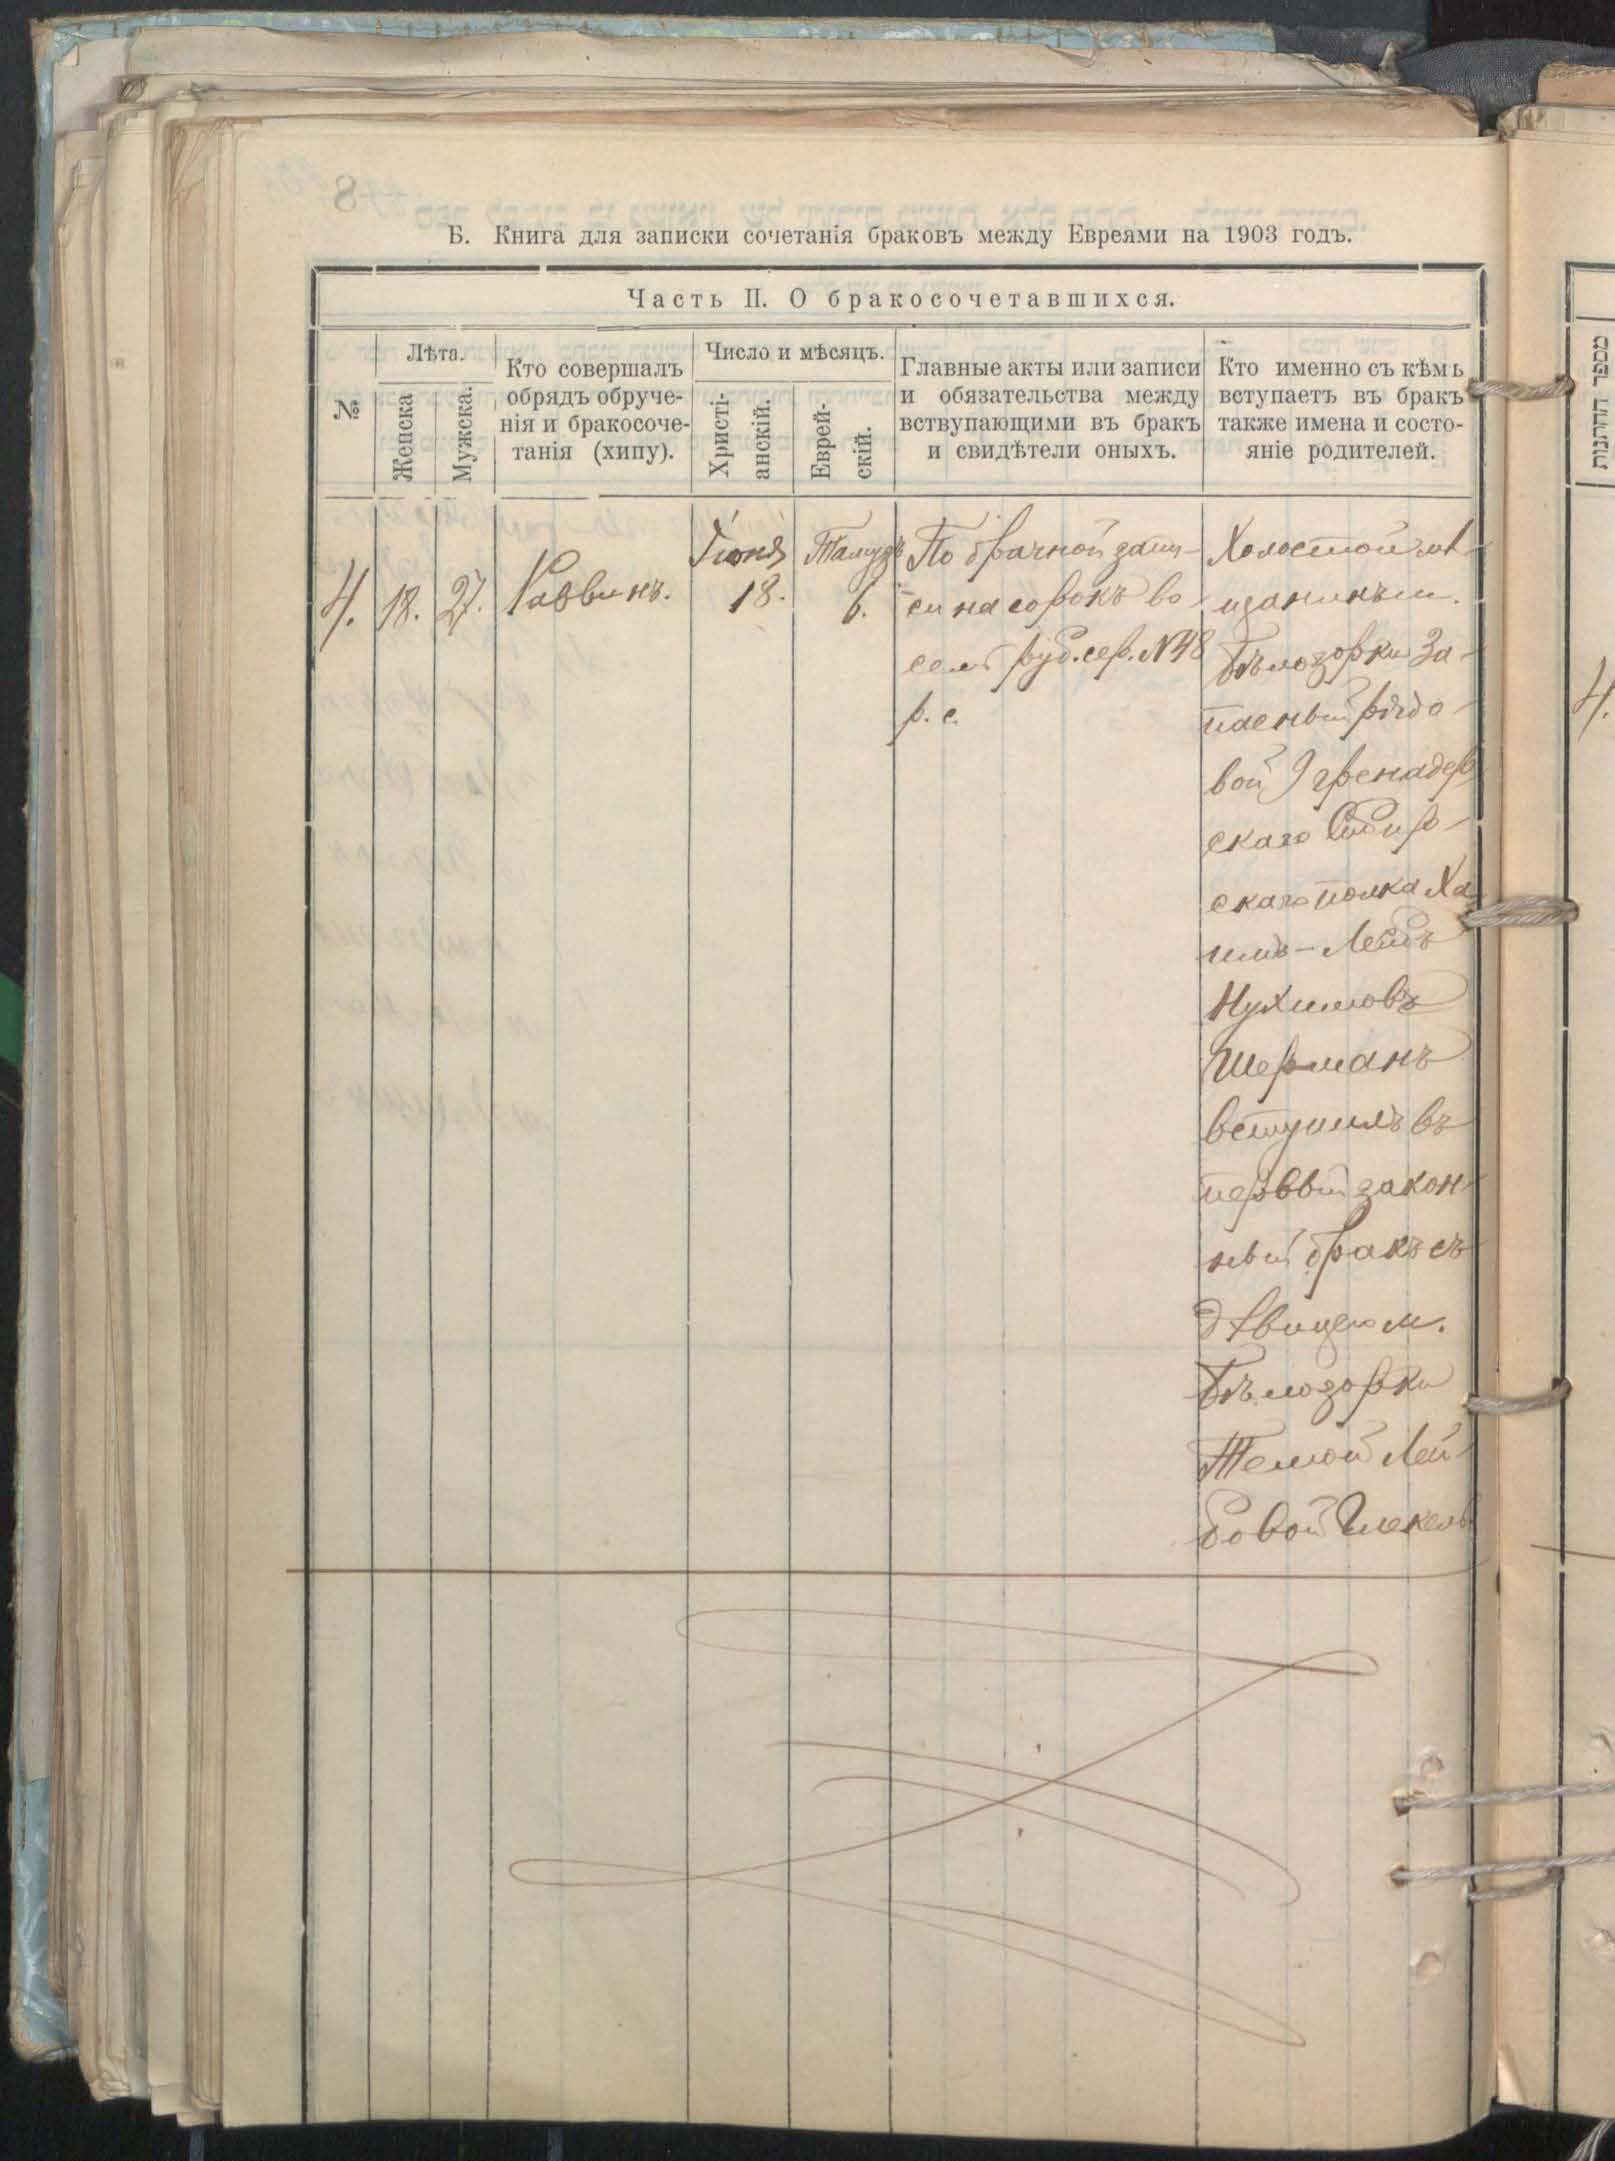 Б. Книга для записки сочетанія браковъ между Евреями на 1903 годъ.
Часть II. О бракосочетавшихся.
№
Лѣта.
Женска
Мужска.
Кто совершалъ
обрядъ обруче-
нія и бракосоче-
танія (хипу).
Число и мѣсяцъ.
Христі-
анскій.
Еврей-
скій.
Главные акты или записи
и обязательства между
вступающими въ бракъ
и свидѣтели оныхъ.
Кто именно съ кѣмъ
вступаетъ въ бракъ
также имена и состо-
яніе родителей.
4.
18.
27.
Раввинъ.
Іюня
18.
Тамузъ
6.
По брачной запи-
си на сорокъ во
семь руб. сер. № 48
р. с.
Холостой мѣ-
щанинъ м.
Бѣлозорки За-
пасный рядо-
вой 9 гренадер
скаго Сибир-
скаго полка Ха
имъ-Лейбъ
Нухимовъ
Шерманъ
вступилъ въ
первый закон-
ный бракъ съ
дѣвицею м.
Бѣлозорки
Темой Лей-
бовой
4.
מספר החתנות